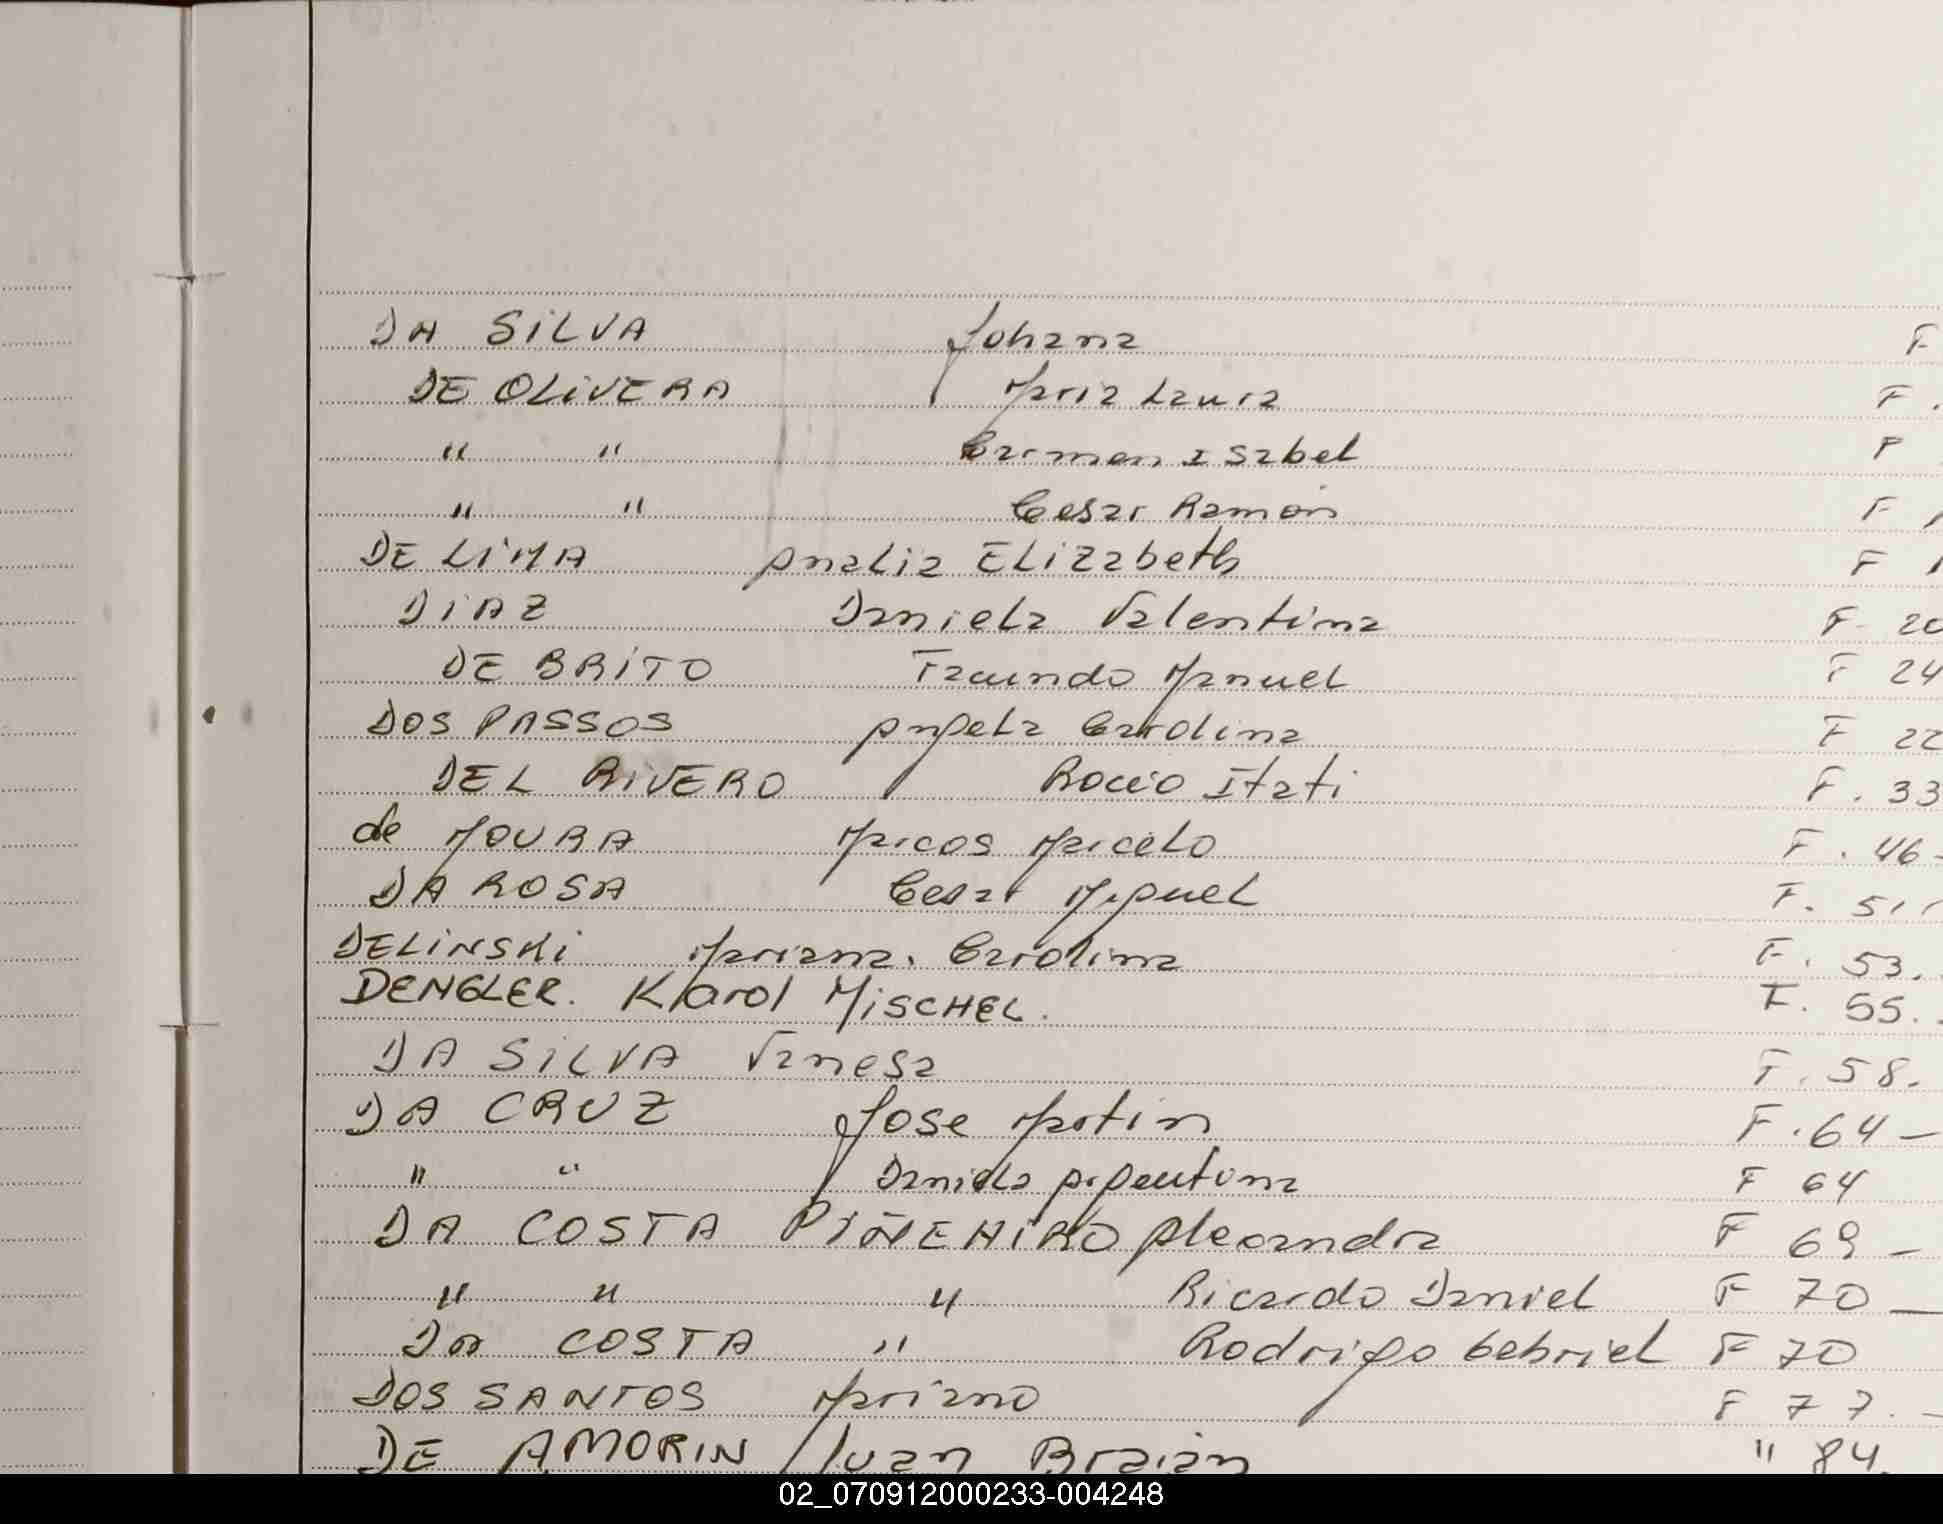 DA SiLVA Johana F
DE OLiVERA Maria Laura F.
" " Carmen Isabel F
" " Cesar Ramón F
DE LiMA Analia Elizabeth F 1
DiAZ Daniela Valentina F. 20
DE BRiTO Facundo Manuel F 24
DOS PASSOS Angela Carolina F 22
DEL RiVERO Rocio Itati F. 33
de MOURA Marcos Marcelo F. 46-
DA ROSA Cesar Miguel F. 51
DELiNSKi Mariana. Carolina F. 53.
DENGLER. Karol MiSCHEL. F. 55.
DA SiLVA Vanesa F. 58.
DA CRUZ Jose Martin F. 64 -
" " Daniela Agustina F 64
DA COSTA PiÑEHiRO Aleandra F 69 -
" " " Ricardo Daniel F 70 -
DA COSTA " Rodrigo Gabriel F 70
DOS SANTOS Mariano F 77. -
DE AMORIN Juan Braian " 84.
02_070912000233-004248